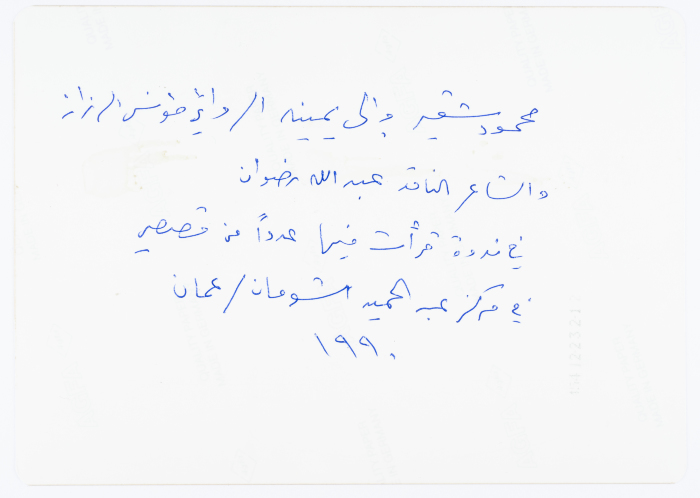 محمود شقير وإلى يمينه الروائي مؤنس الرزاز
والشاعر الناقد عبد الله رضوان
في ندوة قرأت فيها عدداً من قصصي
في مركز عبد الحميد شومان/عمان
١٩٩٠